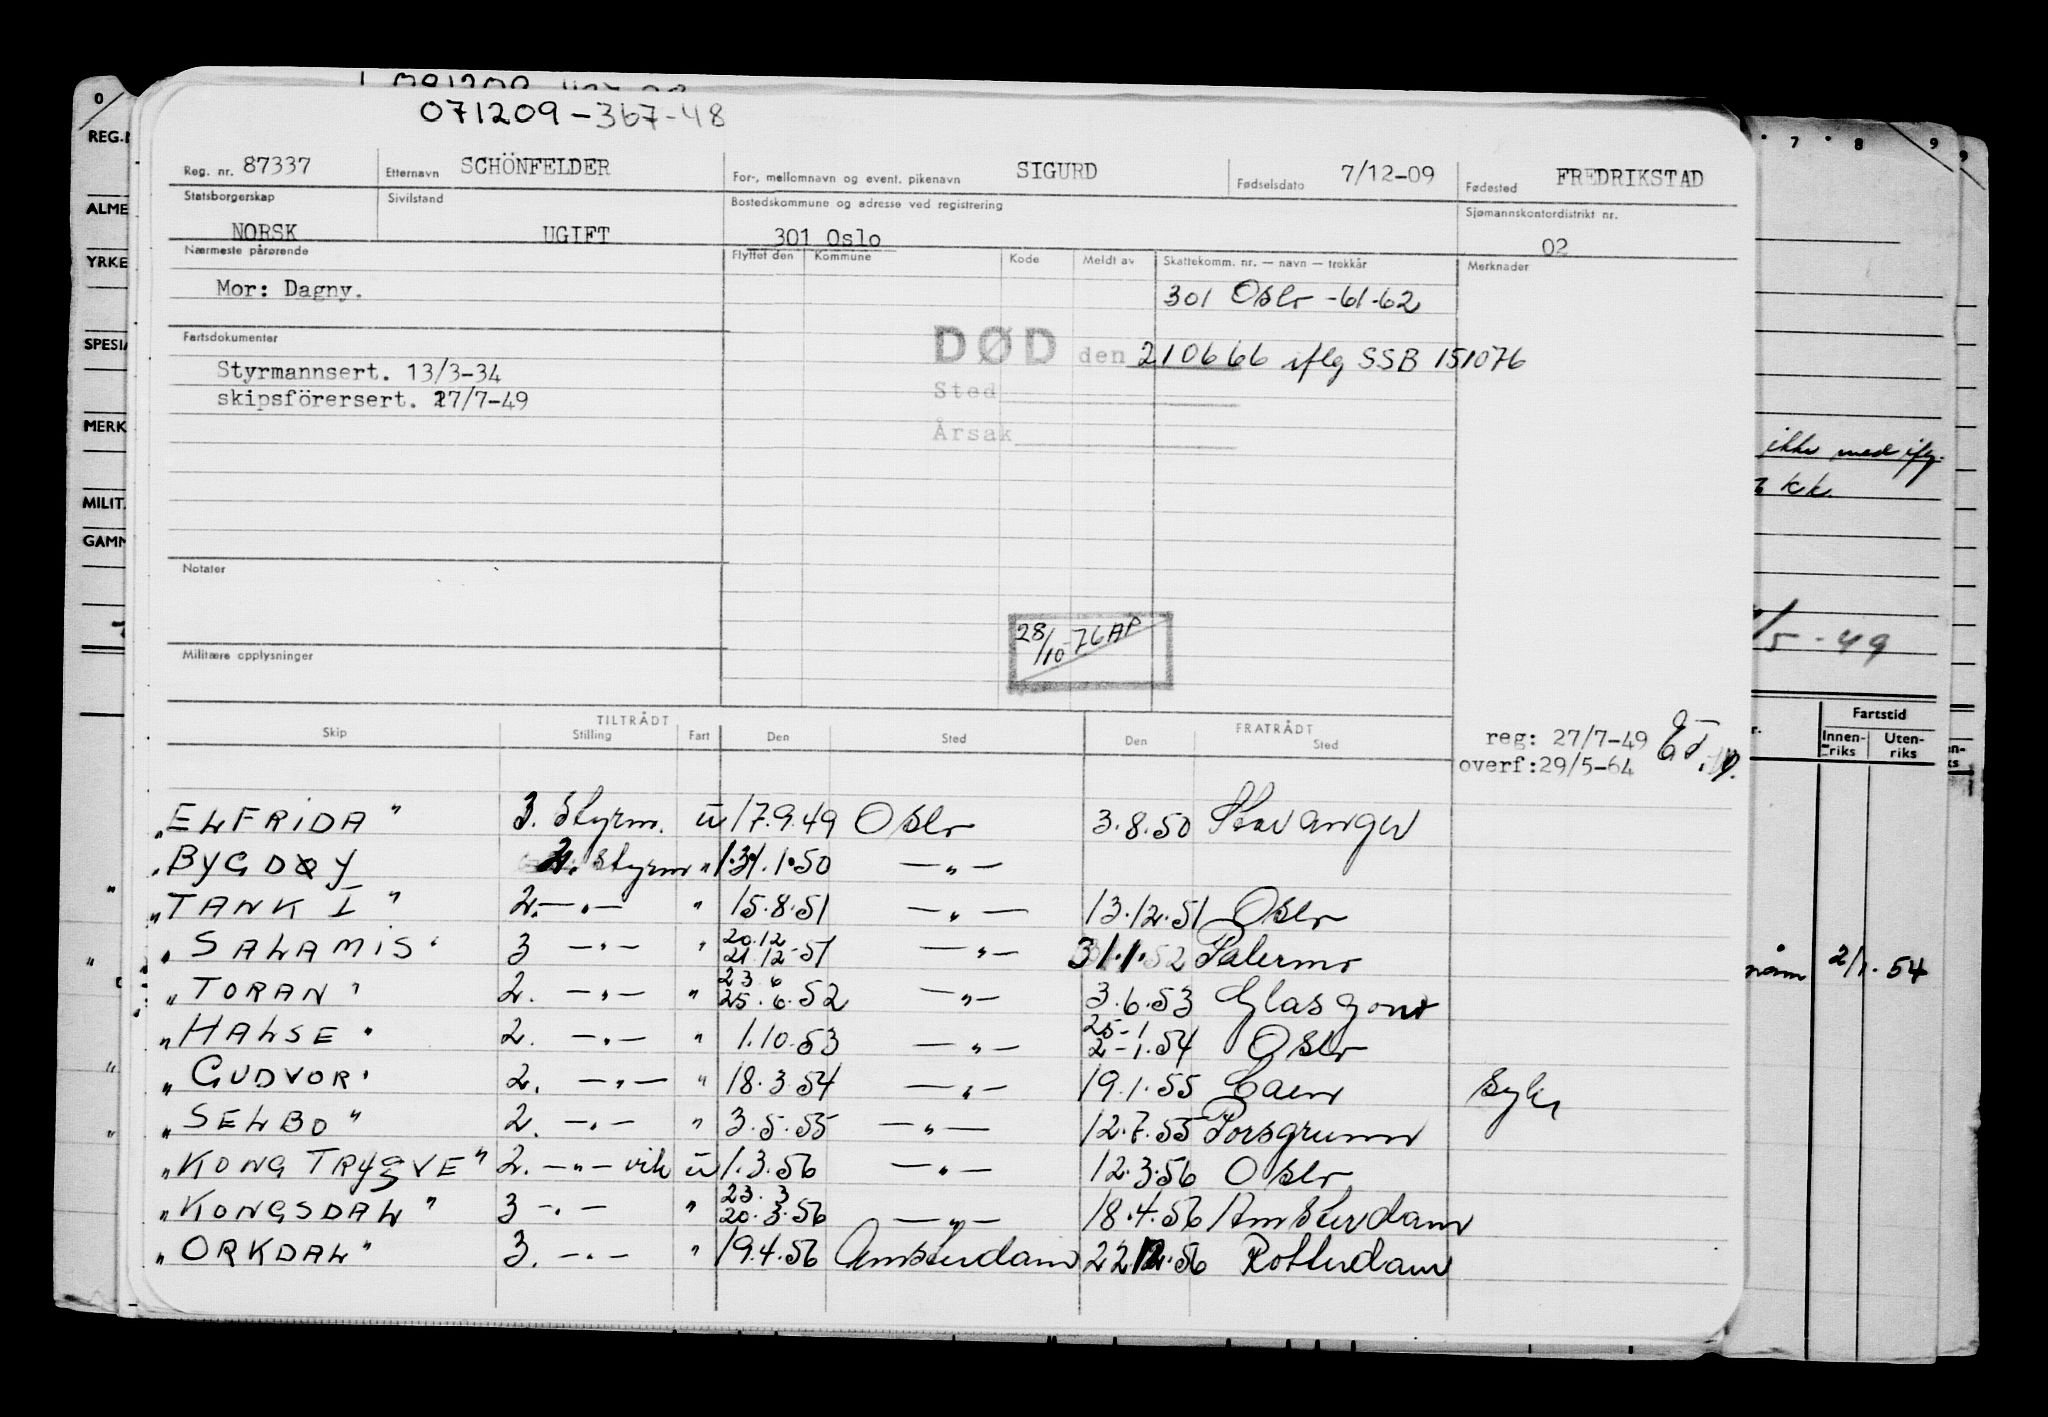 071209-367-48
Reg. nr. 87337 Etternavn SCHÖNFELDER For-, mellomnavn og event. pikenavn SIGURD Fødselsdato 7/12-09 Fødested FREDRIKSTAD
Statsborgerskap Sivilstand Bostedskommune og adresse ved registrering Sjømannskontordistrikt nr.
NORSK UGIFT 301 Oslo 02
Nærmeste pårørende Flyttet den Kommune Kode Meldt av Skattekomm. nr. — navn — trekkår Merknader
Mor: Dagny. 301 Oslo -61-62
Fartsdokumenter DØD den 210666 iflg SSB 151076
Styrmannsert. 13/3-34 Sted
skipsförersert. 27/7-49
Årsak
Notater
28/10-76 AP
Militære opplysninger
TILTRÅDT FRATRÅDT
Skip Stilling Fart Den Sted Den Sted
reg: 27/7-49
overf:29/5-64
"ELFRIDA" 3. Styrm. u 17.9.49 Oslo 3.8.50 Stavanger
"BYGDØY Styrm " 1.50 —"—
"TANK I" 2.—"— " 15.8.51 —"— 13.12.51 Oslo
"SALAMIS" 3 —"— " 20.12 21.12-51 —"— 31.1.52 Palermo
"TORAN" 2. —"— " 23.6 25.6.52 —"— 3.6.53 Glasgow
"HALSE" 2. —"— " 1.10.53 —"— 25-1 2-1.54 Oslo
"GUDVOR" 2. —"— " 18.3.54 —"— 19.1.55 Caen syk
"SELBO" 2. —"— " 3.5.55 —"— 12.7.55 Porsgrunn
"KONG TRYGVE" 2. —"— vik u 1.3.56 —"— 12.3.56 Oslo
"KONGSDAL" 3 —"— " 23.3 20.3.56 —"— 18.4.56 Amsterdam
"ORKDAL" 3. —"— " 19.4.56 Amsterdam 22.12.56 Rotterdam
0
REG.
ALME
YRKE
SPESI
MERK
MILIT
GAMM
7 8 9 9
ikke med iflg.
kk
/5-49
Fartstid
Innen-riks Uten-riks
2/1-54